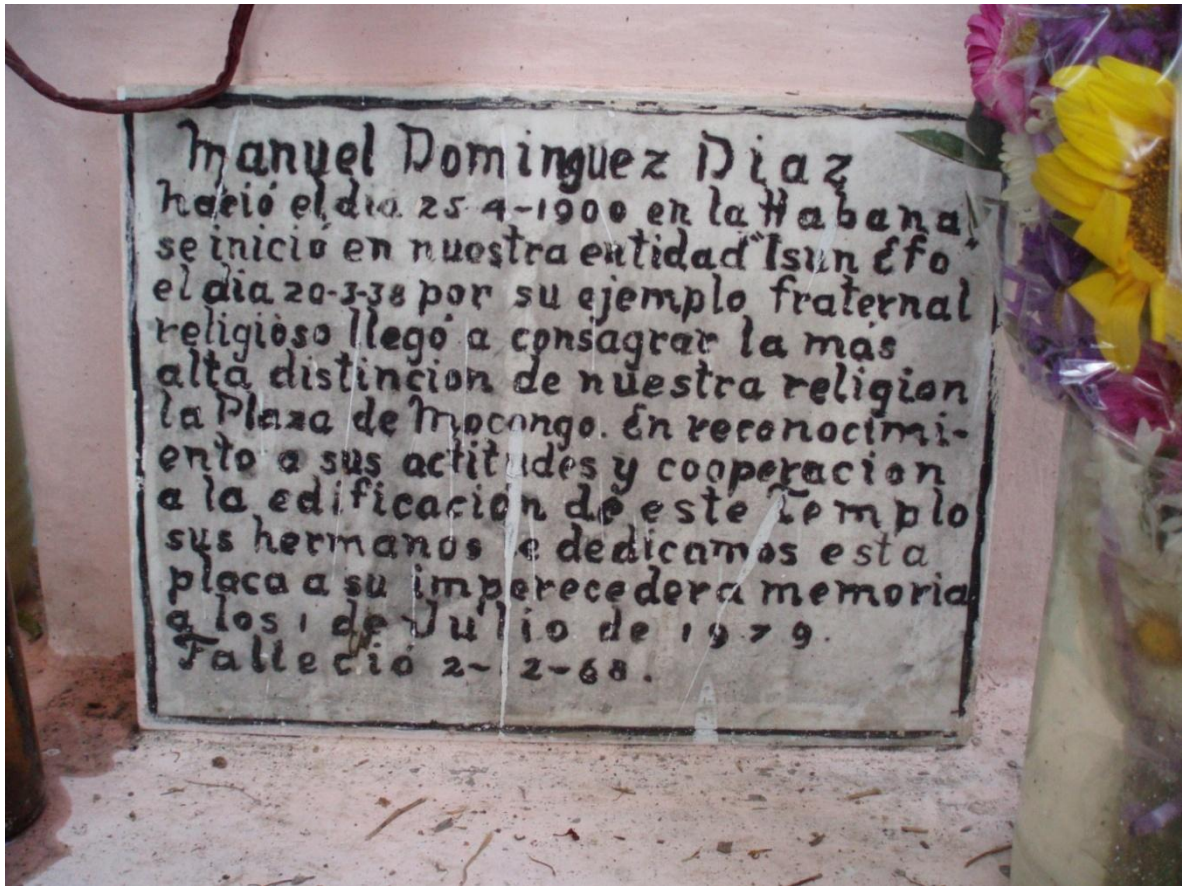 Manuel Dominguez Diaz
Nació el dia 25-4-1900 en la Habana
se inició en nuestra entidad "Isun Efo"
el dia 20-3-38 por su ejemplo fraternal
religioso llegó a consagrar la más
alta distincion de nuestra religion
la Plaza de Mocongo. En reconocimi-
ento a sus actitudes y cooperacion
a la edificacion de este Templo
sus hermanos le dedicamos esta
placa a su imperecedera memoria
a los 1 de Julio de 1979.
Falleció